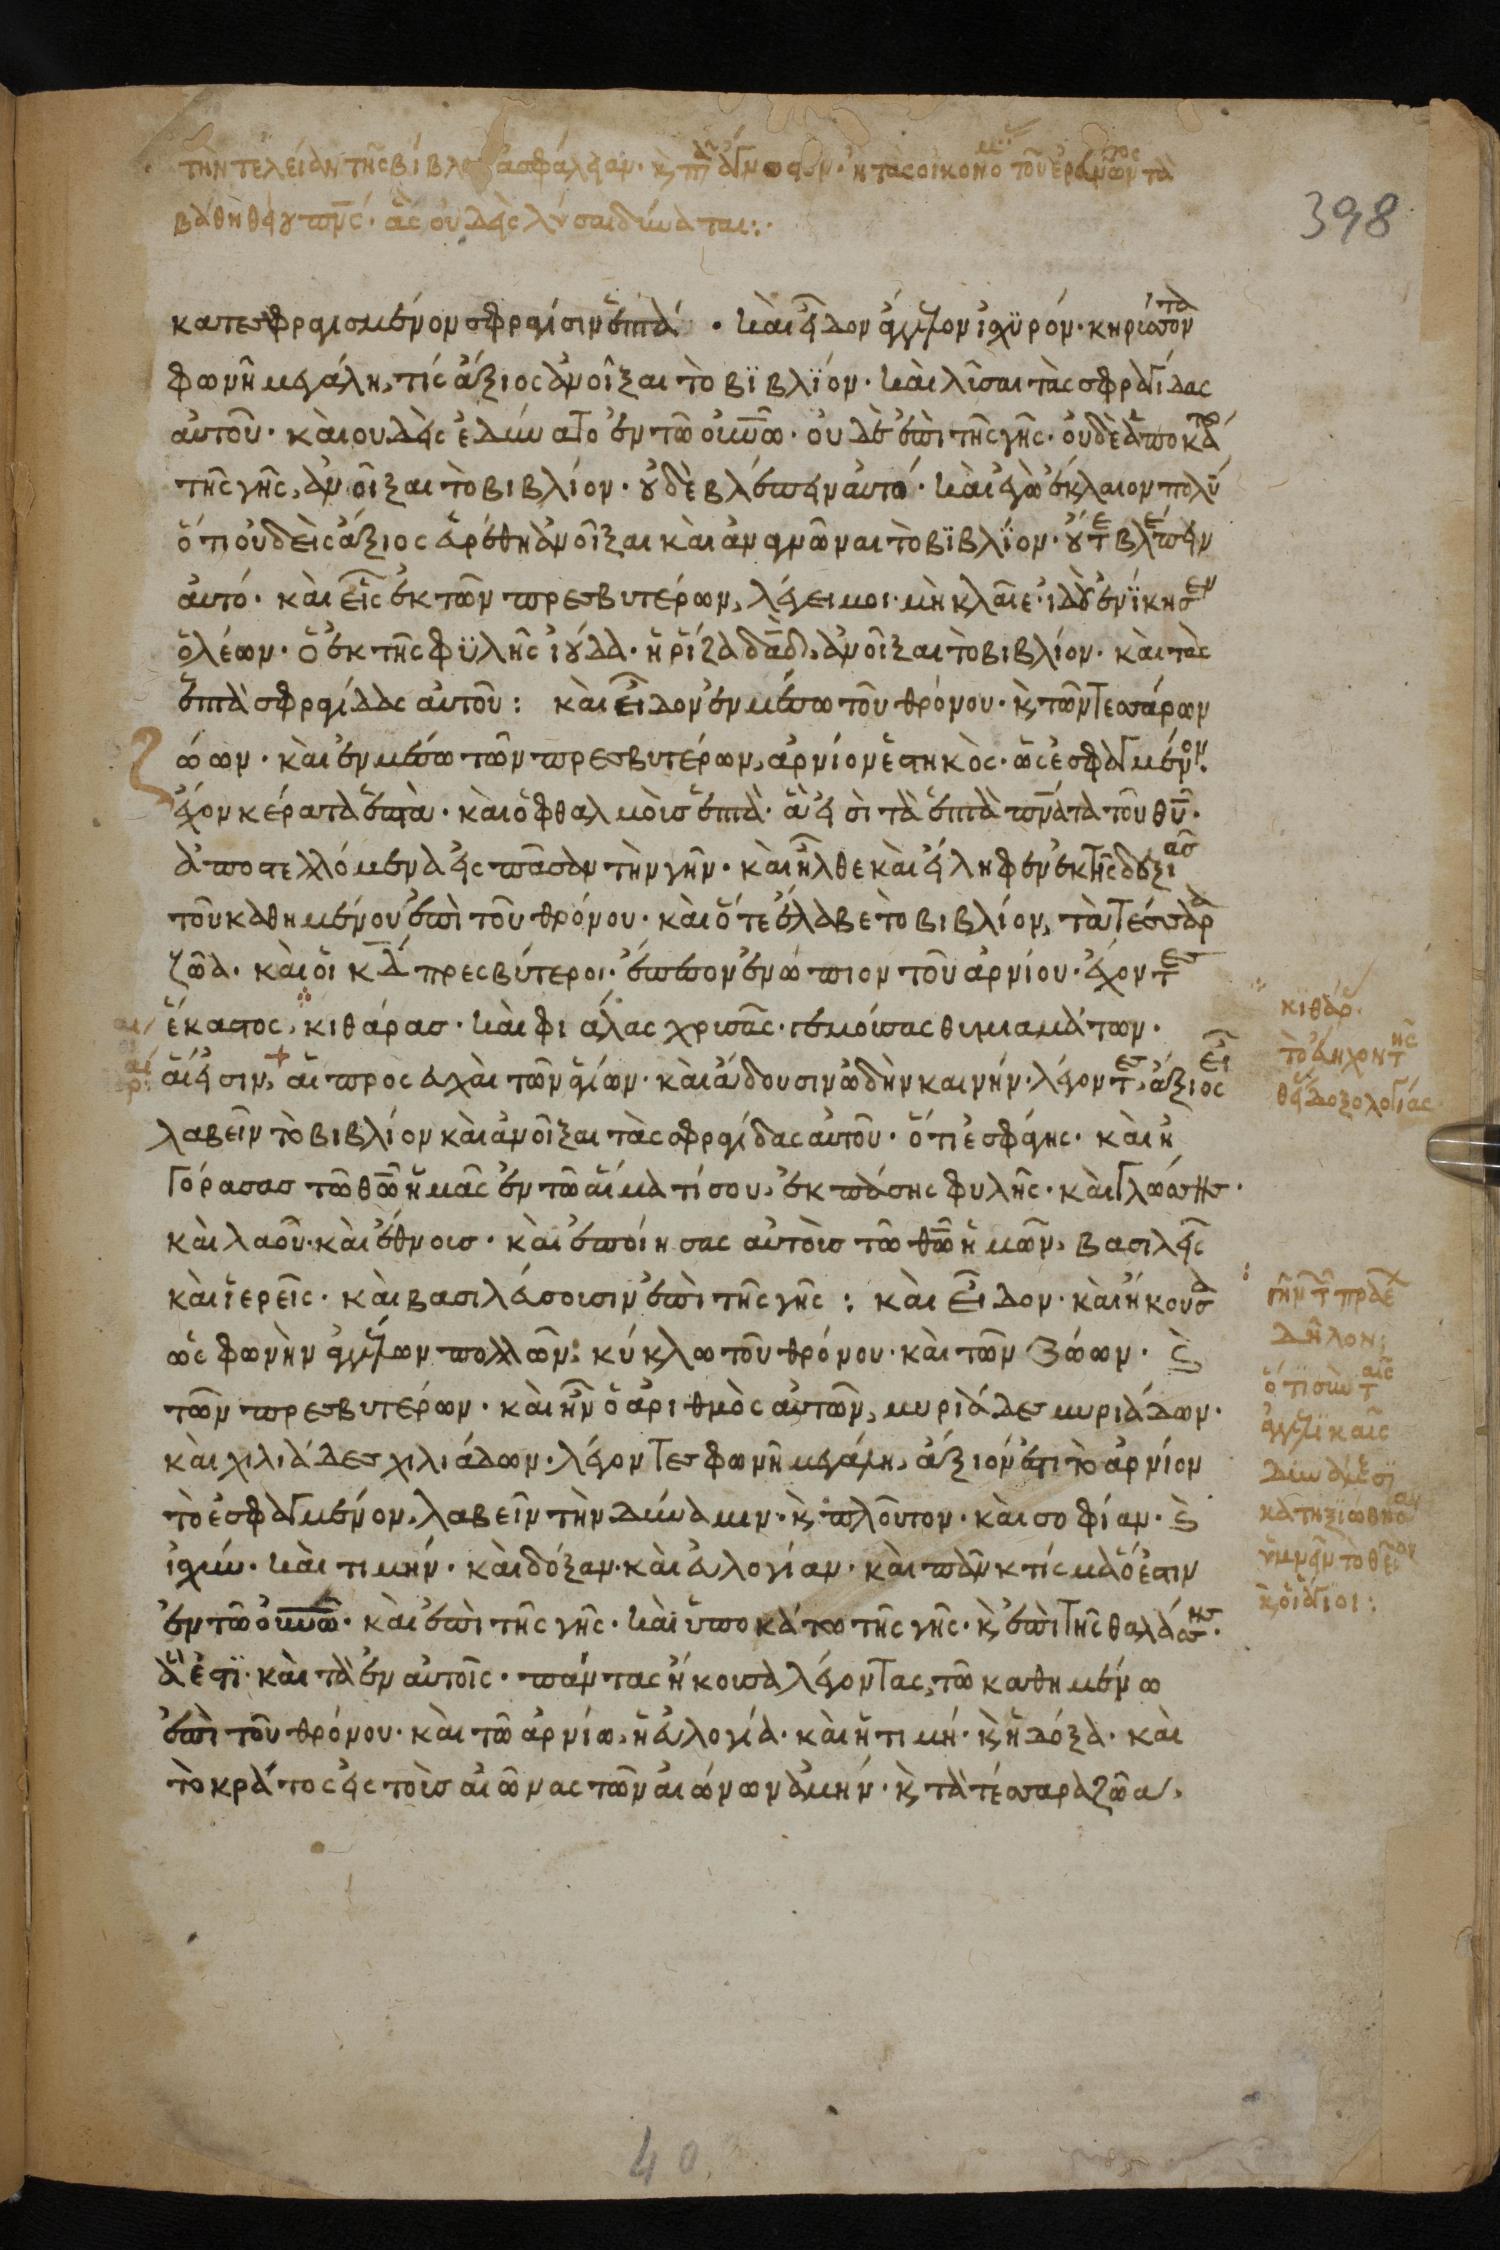 398
τὴν τελείαν τῆς βίβλου ἀσφάλειαν
βάθη θείου πνς· ἃς οὐδεὶς λύσαι δύναται:·
κατεσφραγισμένον σφραγίσιν ἑπτά· καὶ εἶδον ἄγγελον ἰσχϋρόν· κηρύττοντα
φωνῆ μεγάλη, τίς ἄξιος ἀνοῖξαι τὸ βϊβλϊον· καὶ λῦσαι τὰς σφραγῖδας
αὐτοῦ· καὶ ουδεὶς ἐδύνατο ἐν τῶ οὐνῶ· οὐδὲ ἐπὶ τῆς γῆς· οὐδὲ ὑποκάτω
τῆς γῆς, ἀνοῖξαι τὸ βιβλίον· οὐδὲ βλέπειν αὐτό· καὶ ἐγὼ ἔκλαιον πολύ
ὅτι οὐδεὶς ἄξιος εὑρέθη ἀνοῖξαι καὶ ἀναγνῶναι τὸ βϊβλϊον· οὔτε βλέπειν
αὐτό· καὶ εἷς ἐκ τῶν πρεσβυτέρων, λέγει μοι· μὴ κλαῖε· ἰδοὺ ἐνϊκησεν
ὁ λέων· ὁ ἐκ τῆς φϋλῆς ἰούδα· ἡ ῥίζα δᾱδ, ἀνοῖξαι τὸ βιβλίον· καὶ τὰς
ἑπτὰ σφραγίδας αὐτοῦ: καὶ εἶδον ἐν μέσω τοῦ θρόνου· κ τῶν τεσσάρων
ζώων· καὶ ἐν μέσω τῶν πρεσβυτέρων, αρνίον ἑστηκὸς· ὡς ἐσφαγμένον·
ἔχον κέρατα ἑπτὰ· καὶ ὀφθαλμοὺσ ἑπτὰ· ἅ εἰσὶ τὰ ἑπτὰ πνάτα τοῦ θῦ·
ἀποστελλόμενα εἰς πᾶσαν τὴν γῆν· καὶ ἦλθε καὶ εἴληφεν ἐκ τῆς δεξιᾶσ
τοῦ καθημένου ἐπὶ τοῦ θρόνου· καὶ ὅτε ἔλαβε τὸ βιβλίον, τὰ τέσσαρα
ζῶα· καὶ οἱ κδ πρεσβύτεροι· ἔπεσον ἐνώπιον τοῦ ἀρνίου· ἔχοντεσ
ἕκαστος, κιθάρασ· καὶ φιάλας χρυσᾶς· γεμούσας θυμιαμάτων·
αἵ εἰσιν, αἱ προσευχαὶ τῶν ἁγίων· καὶ ἄδουσιν ὠδὴν καινήν· λέγοντεσ, ἄξιος εἶ
λαβεῖν τὸ βιβλίον καὶ ἀνοῖξαι τὰς σφραγίδας αὐτοῦ· ὅτι ἐσφάγης· καὶ ἠ
γόρασασ τῶ θῶ ἡμᾶς ἐν τῶ αἵματί σου, ἐκ πάσης φυλῆς· καὶ γλώσσησ·
καὶ λαοῦ· καὶ ἔθνουσ· καὶ ἐποίησας αὐτοὺσ τῶ θῶ ἡμῶν, βασιλεῖς
καὶ ἱερεῖς· καὶ βασιλεύσουσιν ἐπὶ τῆς γῆς: καὶ εἶδον· καὶ ἤκουσα
ὡς φωνὴν ἀγγέλων πολλῶν· κύκλω τοῦ θρόνου· καὶ τῶν ζώων· κ
τῶν πρεσβυτέρων· καὶ ἦν ὁ ἀριθμὸς αὐτῶν, μυριάδεσ μυριάδων·
καὶ χιλιάδεσ χιλιάδων· λέγοντεσ φωνῆ μεγάλη, ἄξιόν ἐστι τὸ ἀρνίον
τὸ ἐσφαγμένον, λαβεῖν τὴν δύναμιν· κ πλοῦτον· καὶ σοφίαν· κ
ἰσχύν· καὶ τιμήν· καὶ δόξαν· καὶ εὐλογίαν· καὶ πᾶν κτίσμα ὅ ἐστιν
ἐν τῶ οὐνῶ· καὶ ἐπὶ τῆς γῆς· καὶ ὑποκάτω τῆς γῆς· κ ἐπὶ τῆς θαλάσσησ·
ἅ ἐστϊ· καὶ τὰ ἐν αὐτοῖς· πάντας ἤκουσα λέγοντας, τῶ καθημένω
ἐπὶ τοῦ θρόνου· καὶ τῶ ἀρνίω, ἡ εὐλογία· καὶ ἡ τιμή· κ ἡ δόξα· καὶ
τὸ κράτος εἰς τοὺσ αἰῶνας τῶν αἰώνων ἀμήν· κ τὰ τέσσαρα ζῶα,
κϊθάρ
τὸ εὔηχον τῆς
θείας δοξολογίας
δῆλον;
ὅτι σὺν ταῖς
ἀγγελϊκαῖς
δυνάμεσϊ
κατηξιώθησαν
ὑμνεῖν τὸ θεῖον
κ οἱ ἅγιοι:
40